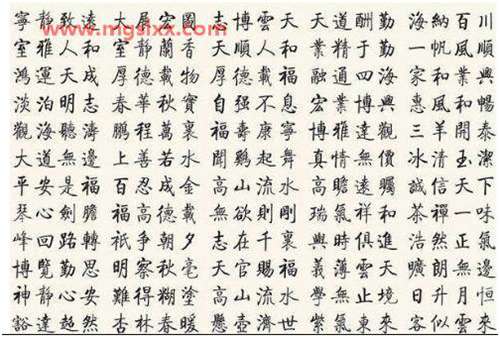 www.mgslxx.com
寧靜致遠 大展宏圖 志博雲天 天道酬勤 海納百川
室雅人和 居靜蘭香 順人和 業精于勤 一帆風順
鴻運天成 厚德載物 厚德載福 融通四海 家和業興
淡泊明志 春華秋實 自强不息 宏業博興 惠風和暢
觀海聽濤 鵬程萬裏 福壽康寧 博雅達觀 三羊開泰
大道無邊 上善若水 聞鷄起舞 真情無價 冰清玉潔
平安是福 百忍成金 高山流水 高瞻遠矚 誠信天下
琴心劍膽 福高德載 無欲則剛 瑞氣祥和 茶禪一味
峰回路轉 祇爭朝夕 志在千裏 與時俱進 浩然正氣
博覽勤思 明察秋毫 天官賜福 義薄雲天 曠朗無邊
神静心安 難得糊塗 高山福水 學無止境 日升月恒
豁達超然 杏林春暖 懸壺濟世 紫氣東來 客似雲來